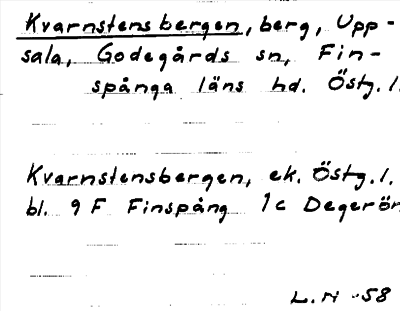 Kvarnstensbergen, berg, Upp-
sala, Godegårds sn, Fin-
spånga läns hd. Östg. l.
Kvarnstensbergen, ek. Östg. l.
bl. 9 F Finspång 1c Degerön
L. N -58